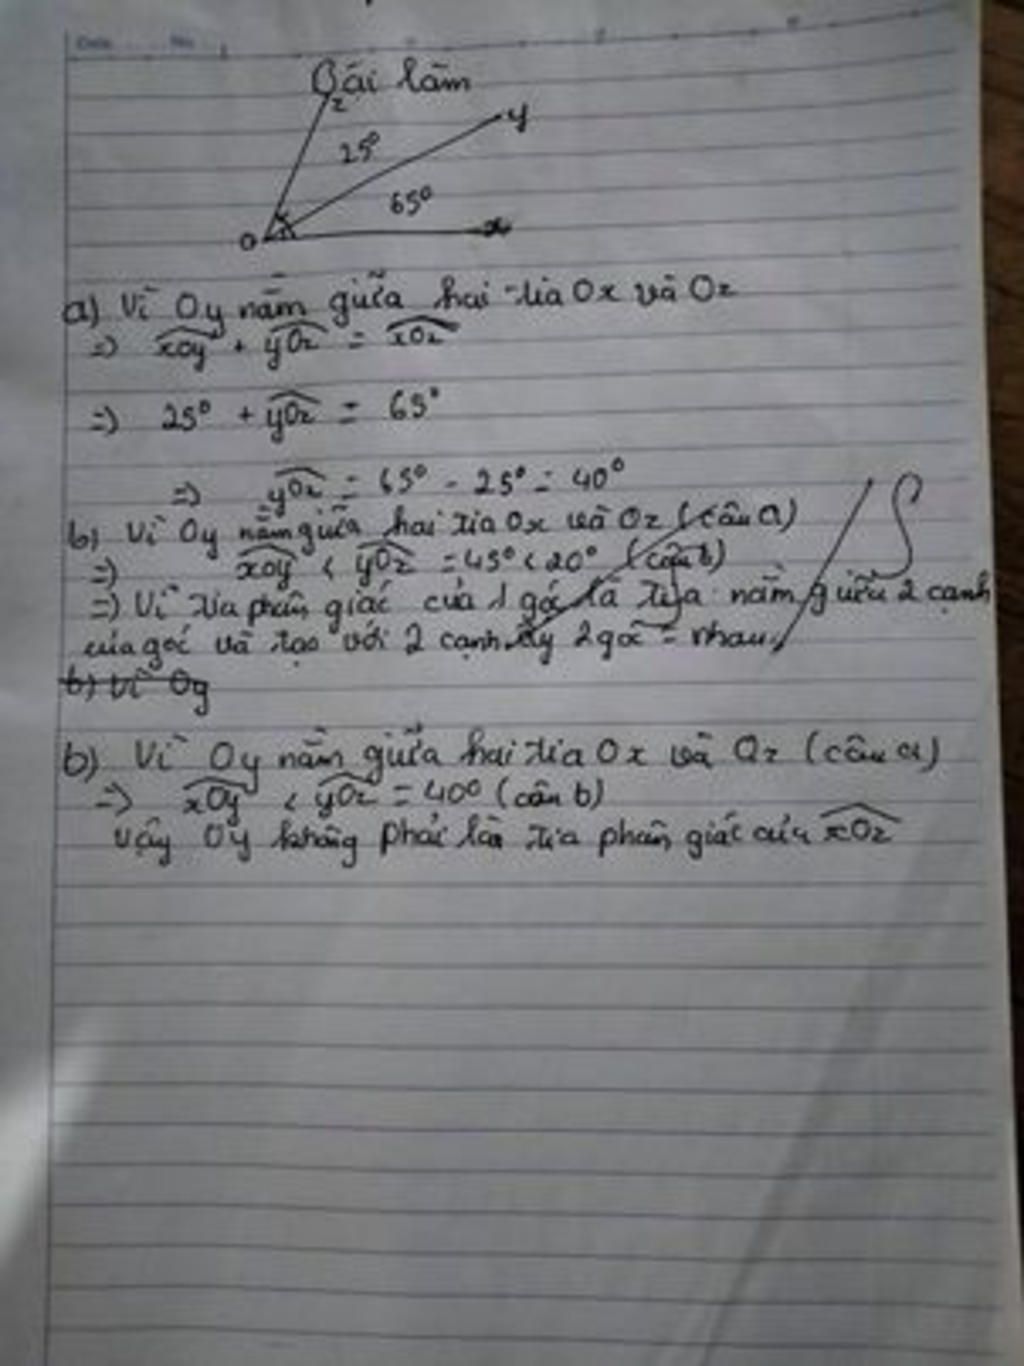 Date No
Bài làm
z
y
25°
65°
O
x
a) Vì Oy nằm giữa hai tia Ox và Oz
=> xOy + yOz = xOz
=> 25° + yOz = 65°
=> yOz = 65° - 25° = 40°
b) Vì Oy nằm giữa hai tia Ox và Oz (câu a)
=> xOy < yOz = 45° < 20° (câu b)
=> Vì tia phân giác của 1 góc là tia nằm giữa 2 cạnh
của góc và tạo với 2 cạnh ấy 2 góc = nhau
S
b) Vì Oy
b) Vì Oy nằm giữa hai tia Ox và Oz (câu a)
=> xOy < yOz = 40° (câu b)
Vậy Oy không phải là tia phân giác của xOz